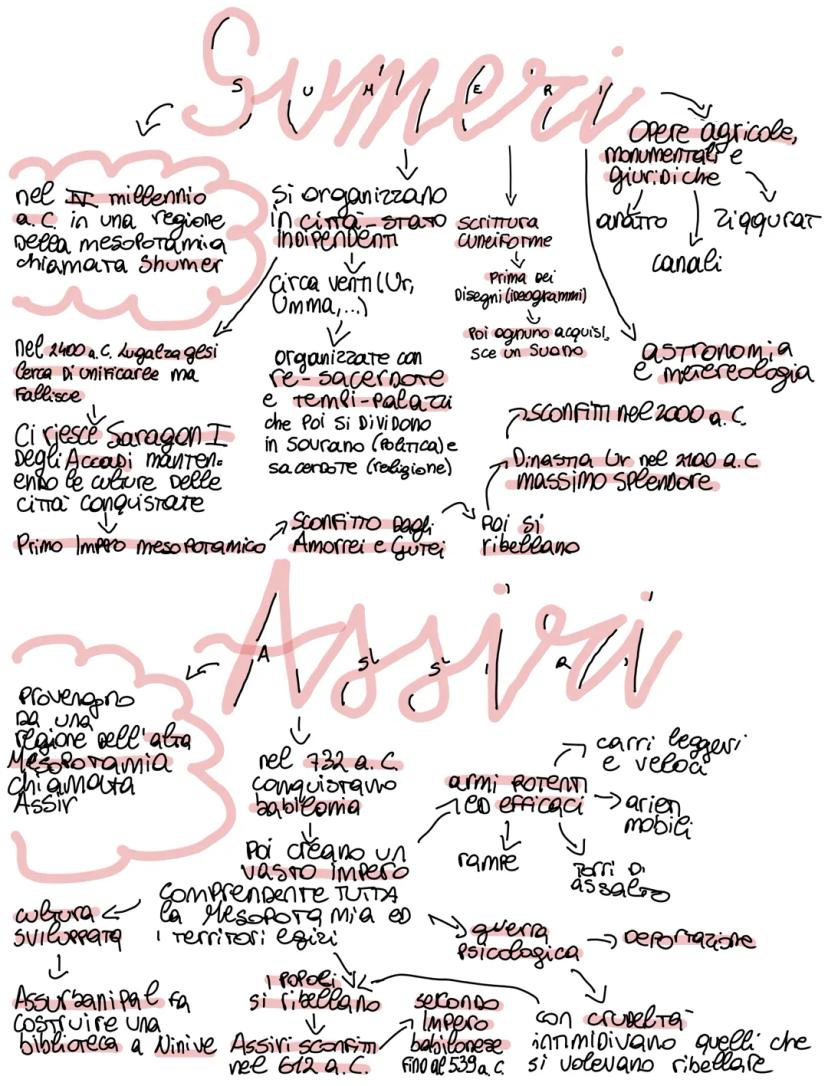 Sumeri
S U M E R I
nel IV millennio
a.C. in una regione
della mesopotamia
chiamata Shumer
si organizzano
in città-stato
indipendenti
circa venti (Ur,
Umma,...)
organizzate con
re-sacerdote
e templi-palazzi
che poi si dividono
in sovrano (politica) e
sacerdote (religione)
scrittura
cuneiforme
Prima dei
Disegni (ideogrammi)
Poi ognuno acquisi,
sce un suono
opere agricole,
monumentali e
giuridiche
aratro
ziqqurat
canali
astronomia
e metereologia
nel 2400 a.C. Lugalzagesi
cerca di unificaree ma
fallisce
Ci riesce Saragon I
degli Accadi manten-
endo le culture delle
città conquistate
Primo Impero mesopotamico
sconfitto dagli
Amorrei e Gutei
Poi si
ribellano
Dinastia Ur nel 2100 a.C
massimo splendore
sconfitti nel 2000 a.C.
Assiri
A S S I R I
Provengono
da una
regione dell'alta
Mesopotamia
chiamata
Assir
nel 732 a.C.
conquistano
babilonia
Poi creano un
vasto impero
comprendente tutta
la Mesopotamia ed
i territori egizi
armi potenti
ed efficaci
carri leggeri
e veloci
arieti
mobili
rampe
torri di
assalto
cultura
sviluppata
Assurbanipal fa
costruire una
biblioteca a Ninive
guerra
psicologica
deportazione
con crudeltà
intimidivano quelli che
si volevano ribellare
i popoli
si ribellano
Assiri sconfitti
nel 612 a.C.
secondo
Impero
babilonese
fino al 539 a.C.